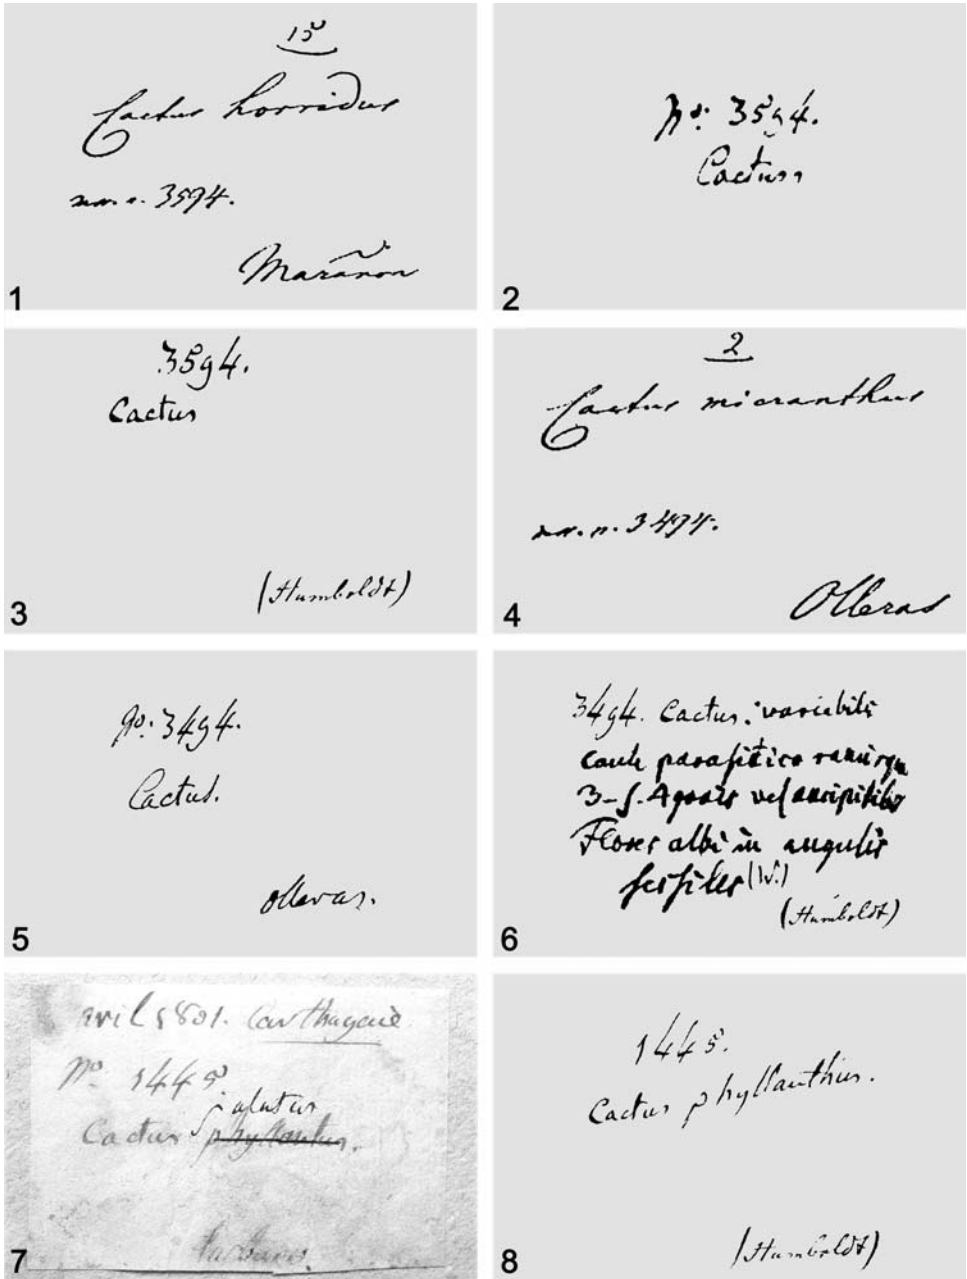 15
Cactus horridus
n. 3594.
Marañon
1
Nº: 3594.
Cactus
2
3594.
Cactus
(Humboldt)
3
2
Cactus micranthus
n. 3494.
Olleras
4
Nº: 3494.
Cactus.
olleras.
5
3494. Cactus, variabilis
caule parasitico
3-5. vel ancipitibus
Flores albi in angulis
sessiles (W.)
(Humboldt)
6
avril 1801. Carthagene
Nº 1445
alatus
Cactus phyllantus.
7
1445.
Cactus phyllanthus.
(Humboldt)
8